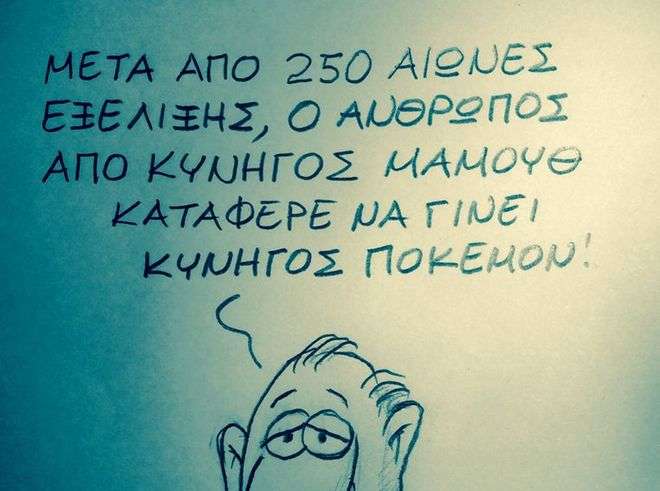 ΜΕΤΑ ΑΠΟ 250 ΑΙΩΝΕΣ
ΕΞΕΛΙΞΗΣ, Ο ΑΝΘΡΩΠΟΣ
ΑΠΟ ΚΥΝΗΓΟΣ ΜΑΜΟΥΘ
ΚΑΤΑΦΕΡΕ ΝΑ ΓΙΝΕΙ
ΚΥΝΗΓΟΣ ΠΟΚΕΜΟΝ!